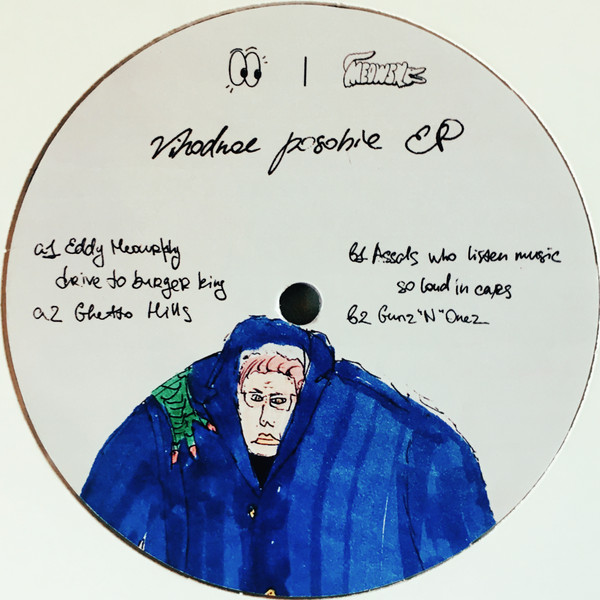 MEOWSN
Vihodnoe posobie EP
a1 Eddy Meowrphy
drive to burger king
a2 Ghetto Hills
b1 Assols who lissen music
so loud in cares
b2 Gunz "N" Onez